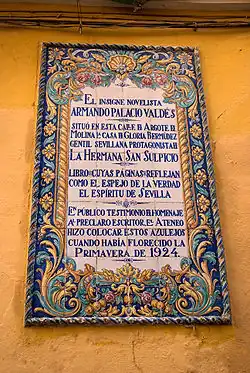 EL INSIGNE NOVELISTA
ARMANDO PALACIO VALDÉS
SITUÓ EN ESTA CALLE D ARGOTE D
MOLINA LA CASA D GLORIA BERMÚDEZ
GENTIL SEVILLANA PROTAGONISTA D
LA HERMANA SAN SULPICIO
LIBRO CUYAS PÁGINAS REFLEJAN
COMO EL ESPEJO DE LA VERDAD
EL ESPÍRITU DE SEVILLA
EN PÚBLICO TESTIMONIO D HOMENAJE
AL PRECLARO ESCRITOR, EL ATENEO
HIZO COLOCAR ESTOS AZULEJOS
CUANDO HABÍA FLORECIDO LA
PRIMAVERA DE 1924.